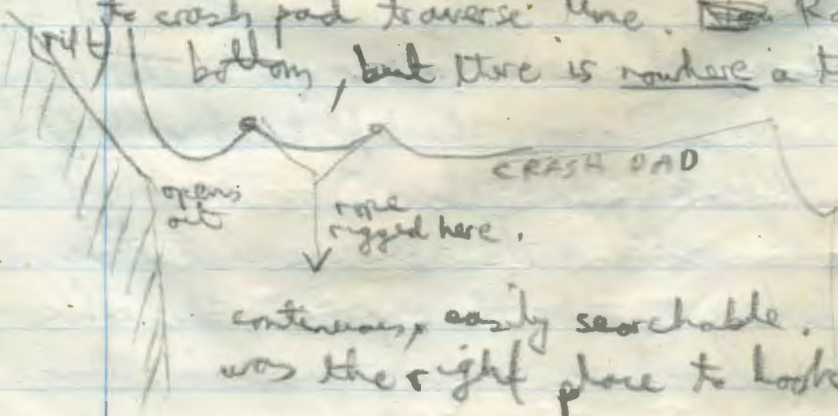 to crash pad traverse line. R
rift
bottom, but there is nowhere a t
CRASH PAD
opens
out
rope
rigged here.
continuous, easily searchable.
was the right place to look